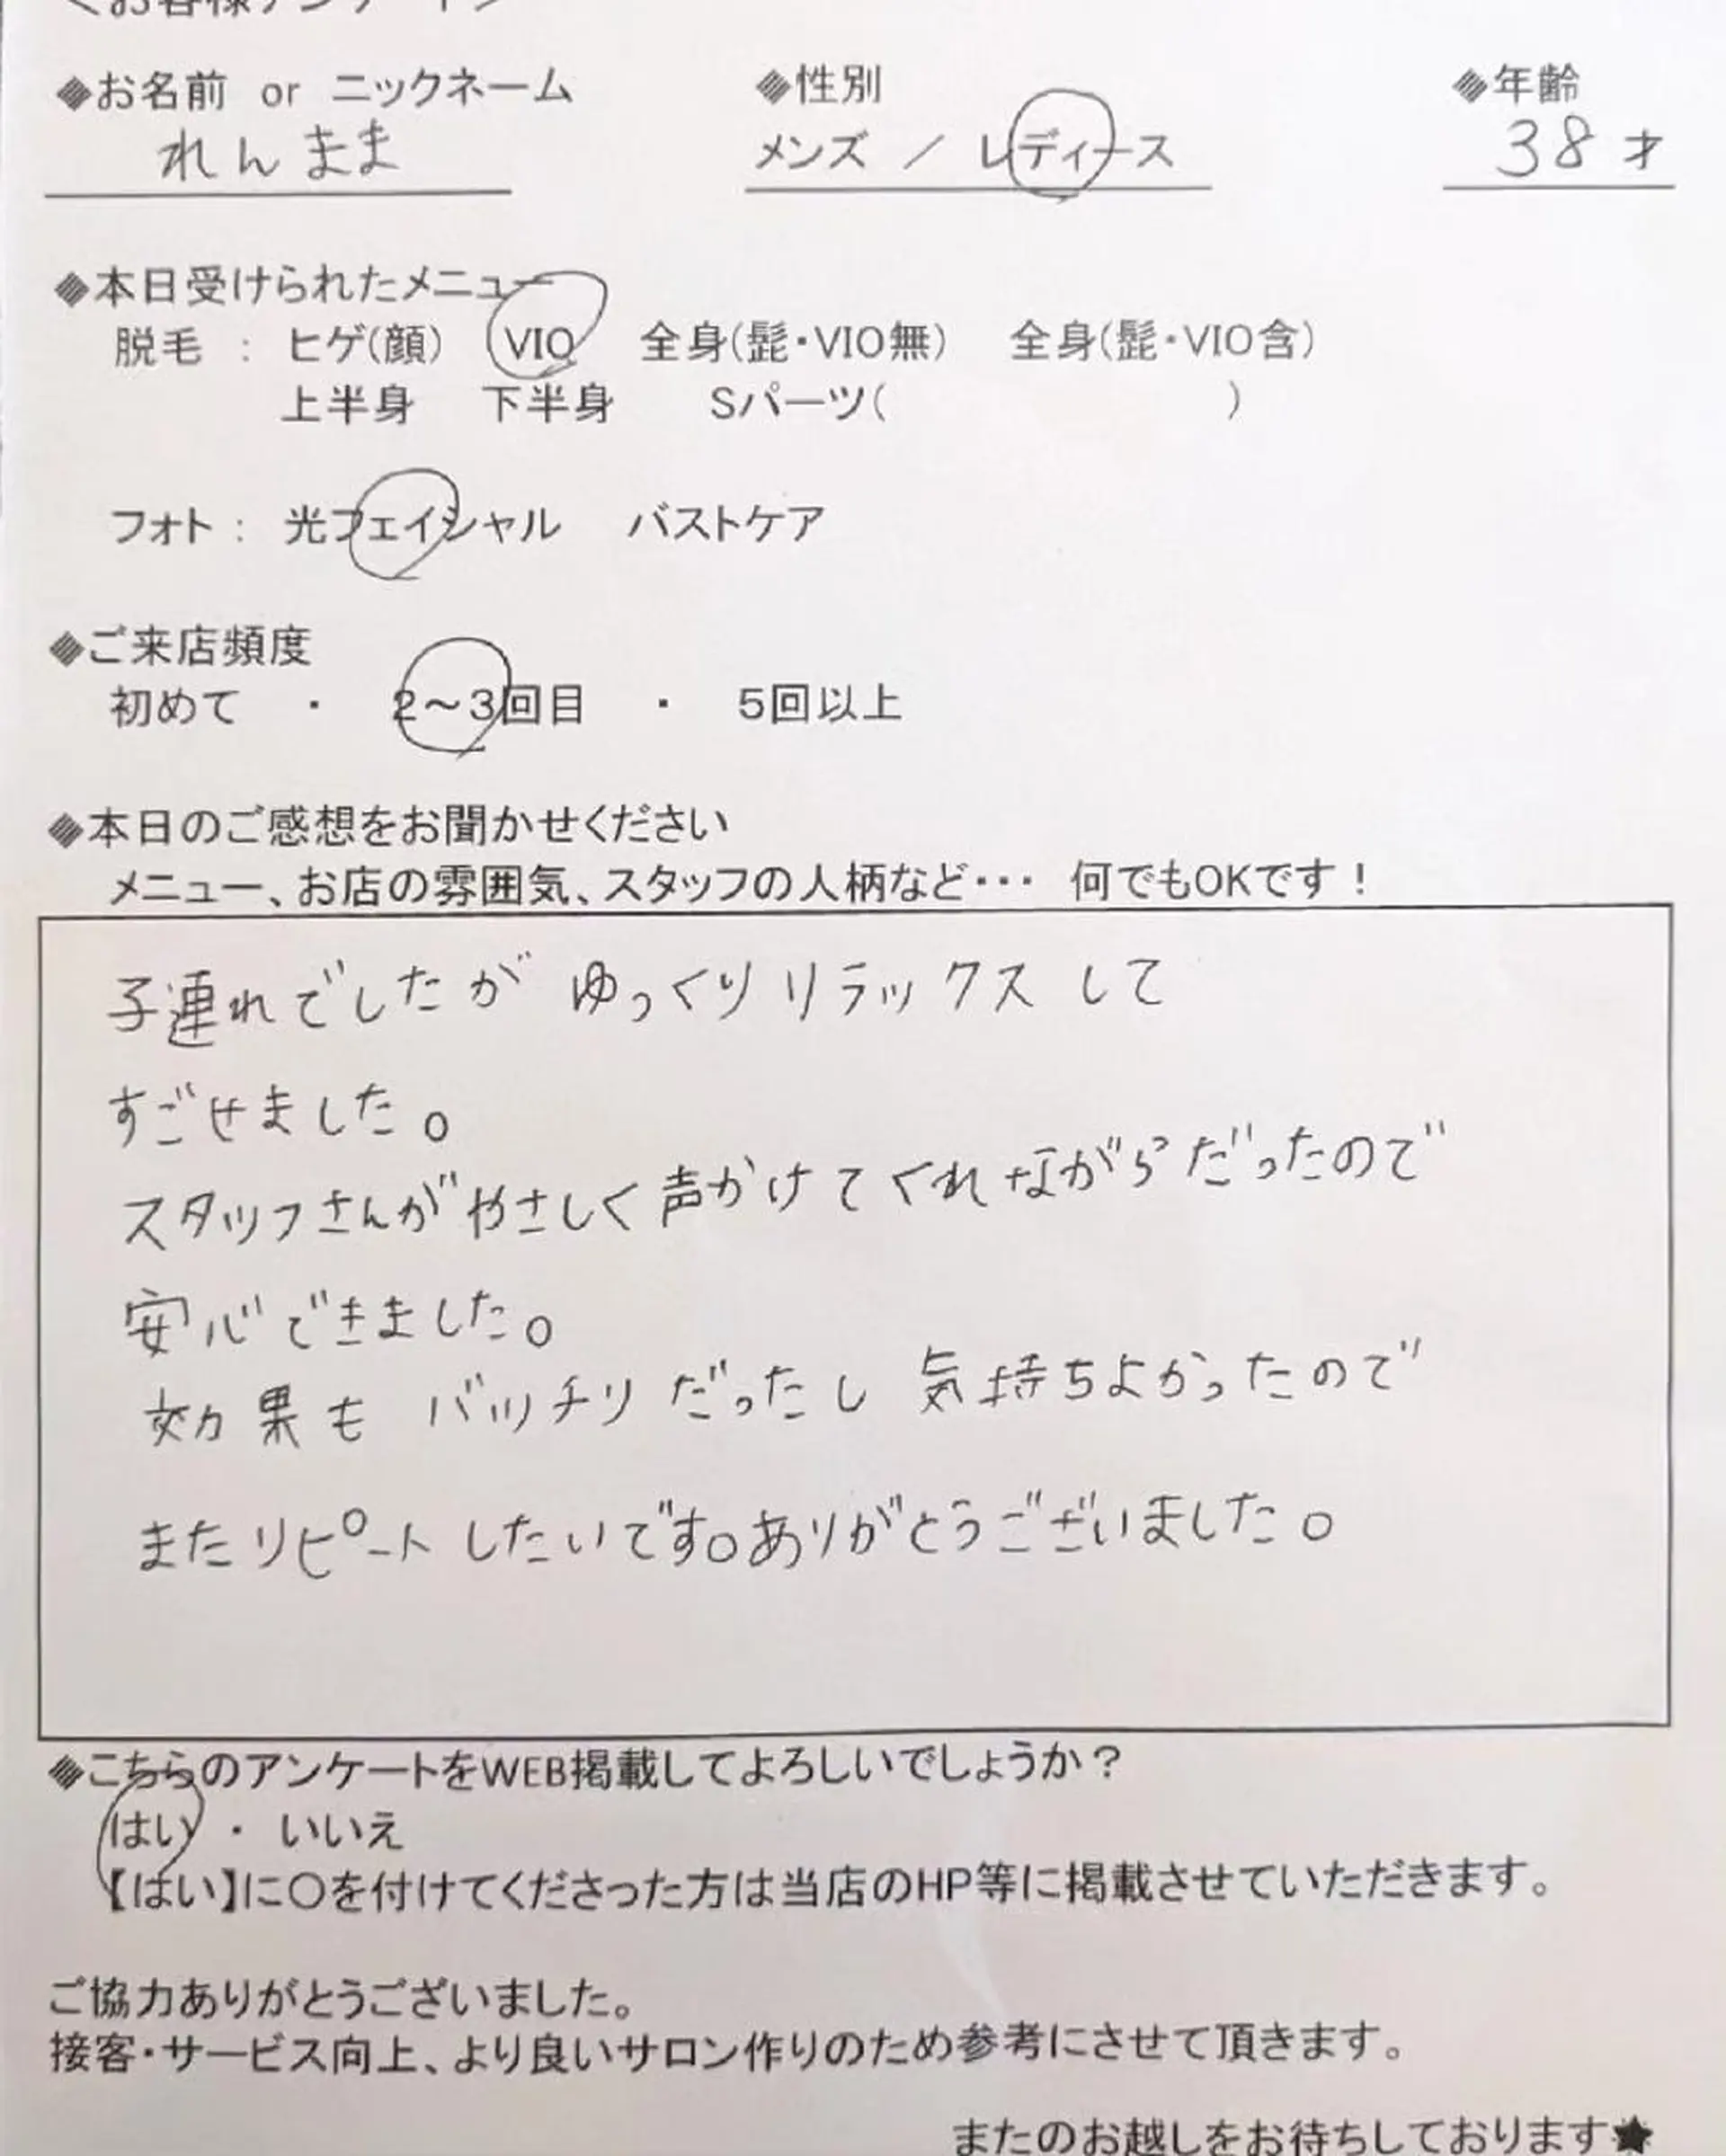 <お客様アンケート>
◆お名前 or ニックネーム ◆性別 ◆年齢
れんまま メンズ / レディース 38才
◆本日受けられたメニュー
脱毛 : ヒゲ(顔) VIO 全身(髭・VIO無) 全身(髭・VIO含)
上半身 下半身 Sパーツ( )
フォト : 光フェイシャル バストケア
◆ご来店頻度
初めて ・ 2～3回目 ・ 5回以上
◆本日のご感想をお聞かせください
メニュー、お店の雰囲気、スタッフの人柄など・・・ 何でもOKです！
子連れでしたが ゆっくりリラックス して
すごせました。
スタッフさんがやさしく声かけてくれながらだったので
安心できました。
効果も バッチリ だったし 気持ちよかったので
またリピートしたいです。ありがとうございました。
◆こちらのアンケートをWEB掲載してよろしいでしょうか？
はい ・ いいえ
【はい】に〇を付けてくださった方は当店のHP等に掲載させていただきます。
ご協力ありがとうございました。
接客・サービス向上、より良いサロン作りのため参考にさせて頂きます。
またのお越しをお待ちしております★